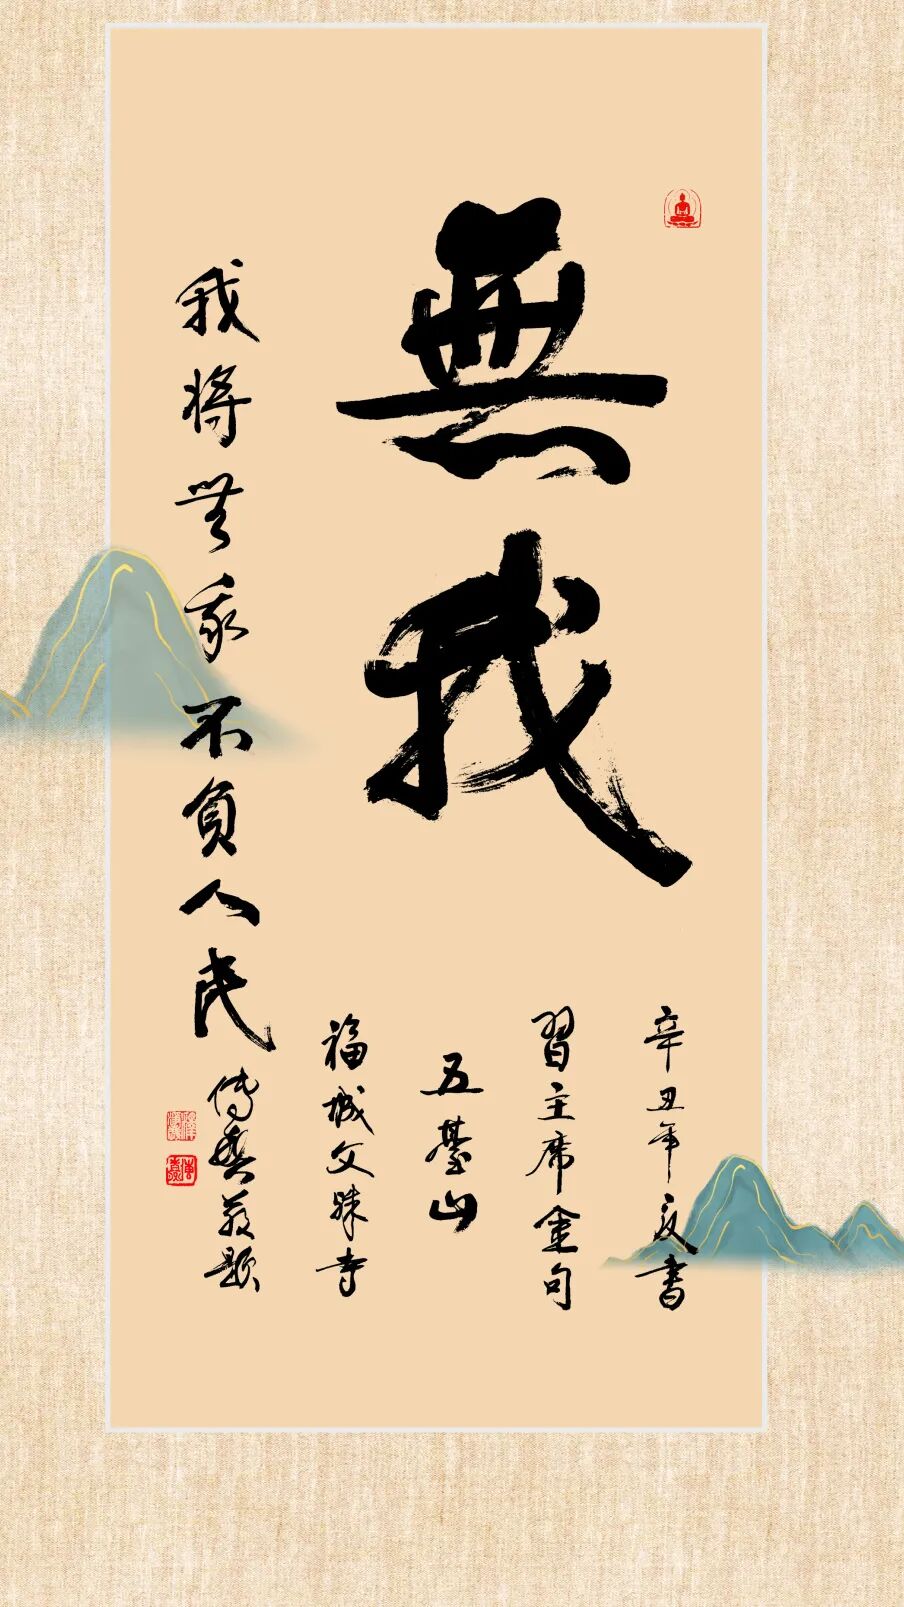 無我
辛丑年敬書
習主席金句
五臺山
福城文殊寺
我將無我不負人民
傳興敬題